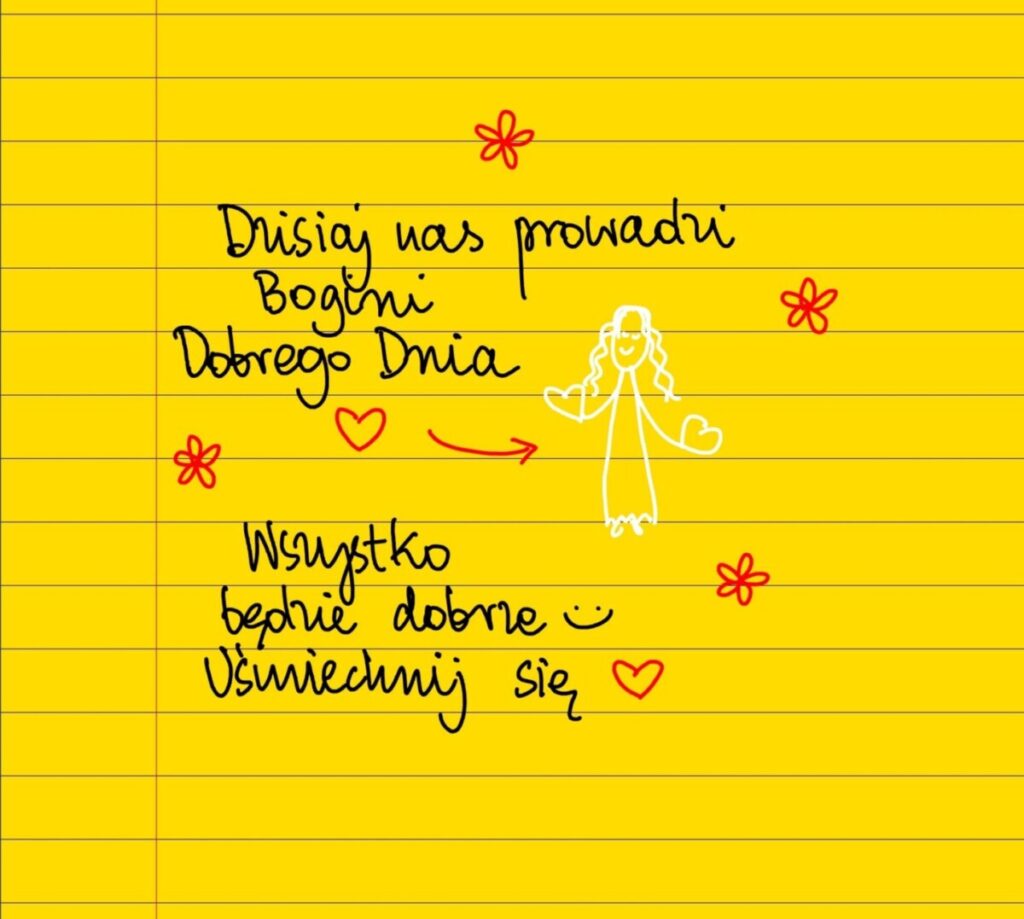 Dzisiaj nas prowadzi
Bogini
Dobrego Dnia
Wszystko
będzie dobrze
Uśmiechnij się